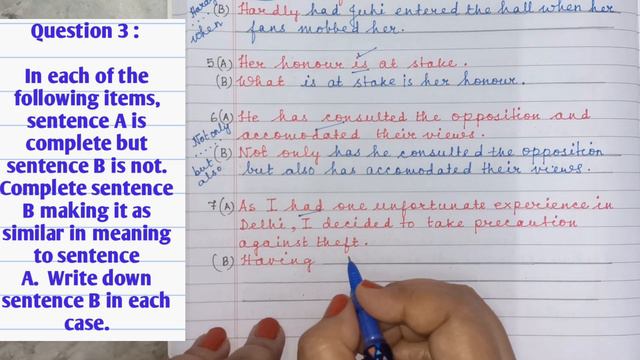 Question 3 :
In each of the
following items,
sentence A is
complete but
sentence B is not.
Complete sentence
B making it as
similar in meaning
to sentence
A. Write down
sentence B in each
case.
(B) Hardly had Juhi entered the hall when her
when
fans mobbed her.
5(A) Her honour is at stake.
(B) What is at stake is her honour.
6(A) He has consulted the opposition and
accomodated their views.
Not only
.....
but
also
(B) Not only has he consulted the opposition
but also has accomodated their views.
7(A) As I had one unfortunate experience in
Delhi, I decided to take precaution
against theft.
(B) Having